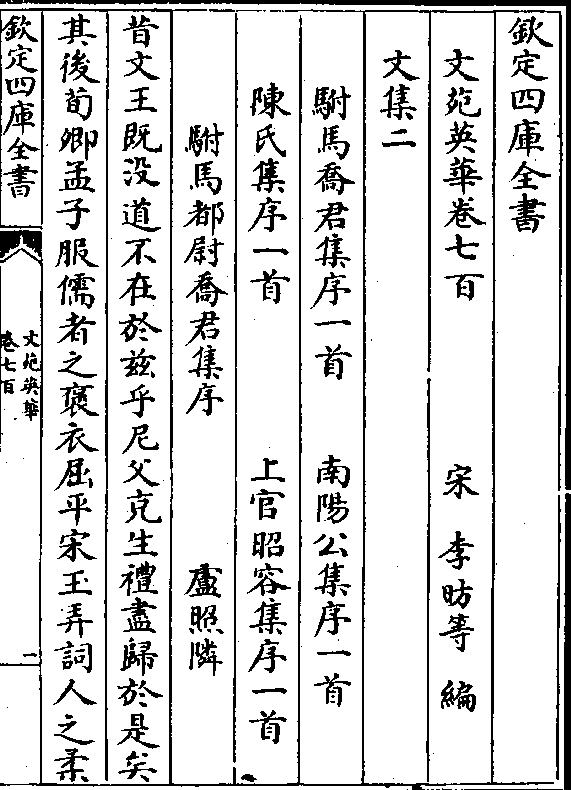 欽定四庫全書
文苑英華卷七百 宋 李昉等 編
文集二
駙馬喬君集序一首 南陽公集序一首
陳氏集序一首 上官昭容集序一首
駙馬都尉喬君集序 盧照隣
昔文王既没道不在於兹乎尼父克生禮盡歸於是矣
其後荀卿孟子服儒者之襃衣屈平宋玉弄詞人之柔
欽定四庫全書
文苑英華
卷七百
一